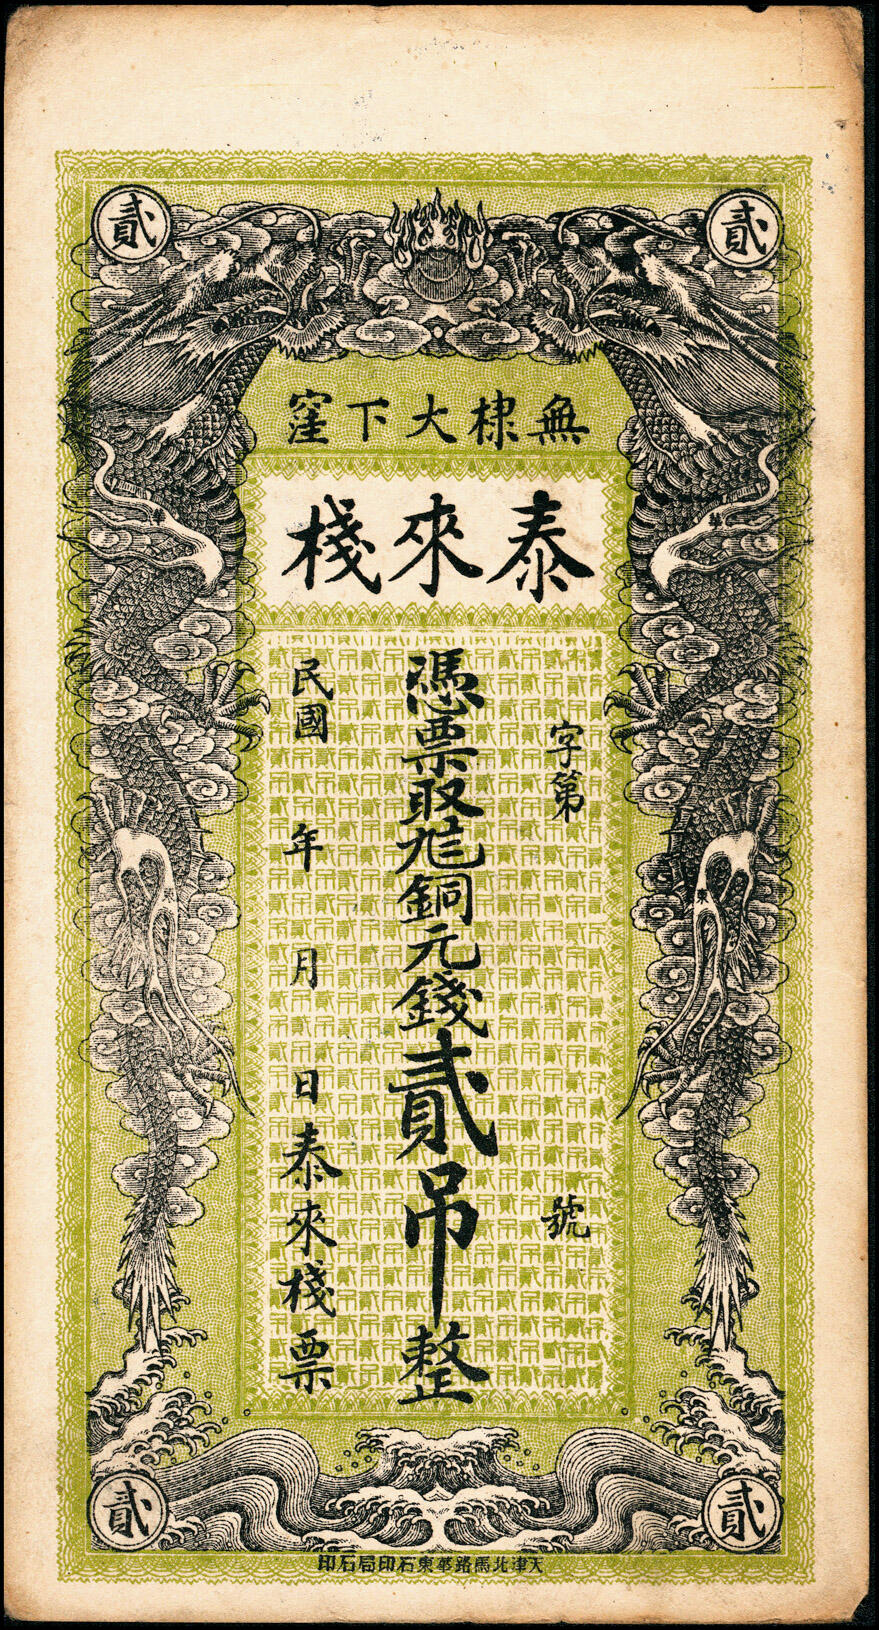 貳
貳
無棣大下窪
泰來棧
字第 號
憑票取銅元錢貳吊整
民國 年 月 日泰來棧票
貳
貳
天津北馬路華東石印局石印